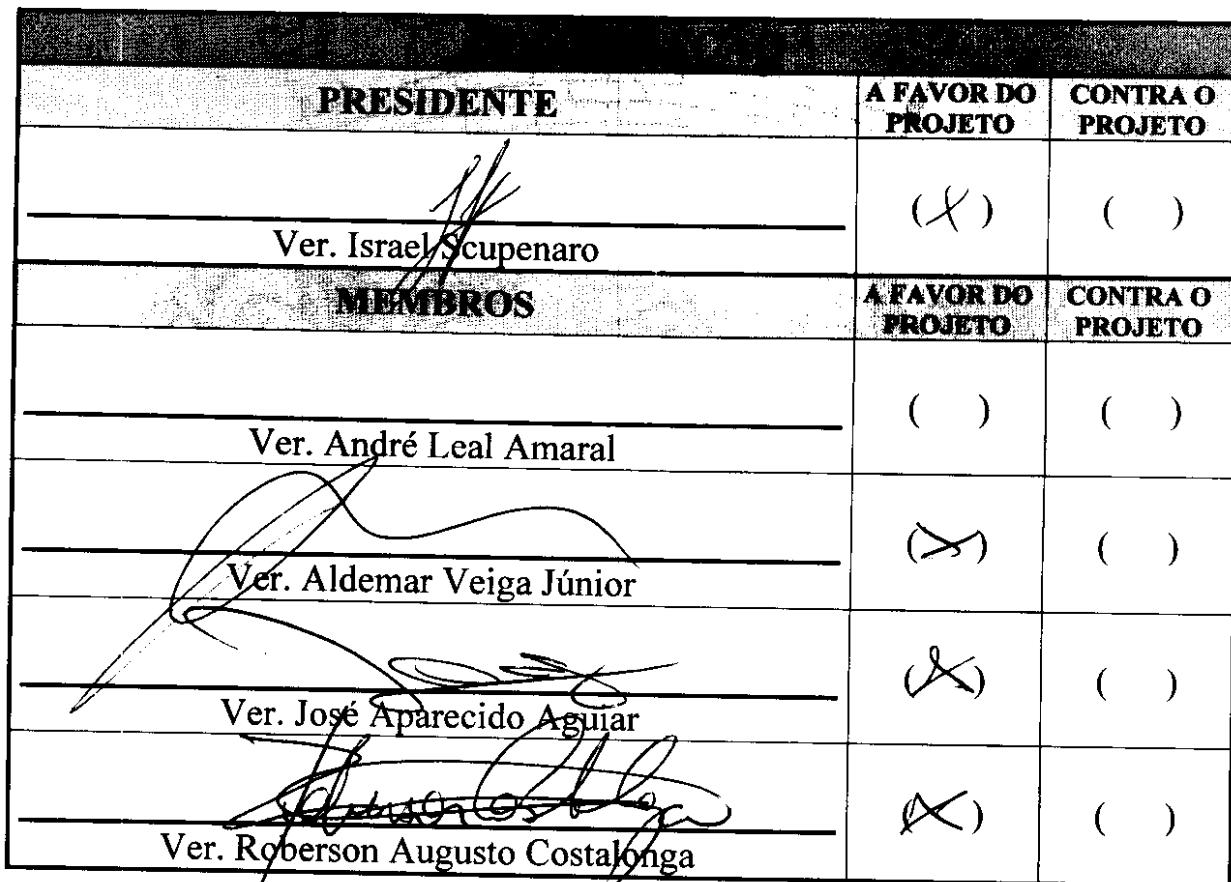 PRESIDENTE
A FAVOR DO PROJETO
CONTRA O PROJETO
(X) ( )
Ver. Israel Scupenaro
MEMBROS
A FAVOR DO PROJETO
CONTRA O PROJETO
( ) ( )
Ver. André Leal Amaral
(X) ( )
Ver. Aldemar Veiga Júnior
(X) ( )
Ver. José Aparecido Aguiar
(X) ( )
Ver. Roberson Augusto Costalonga